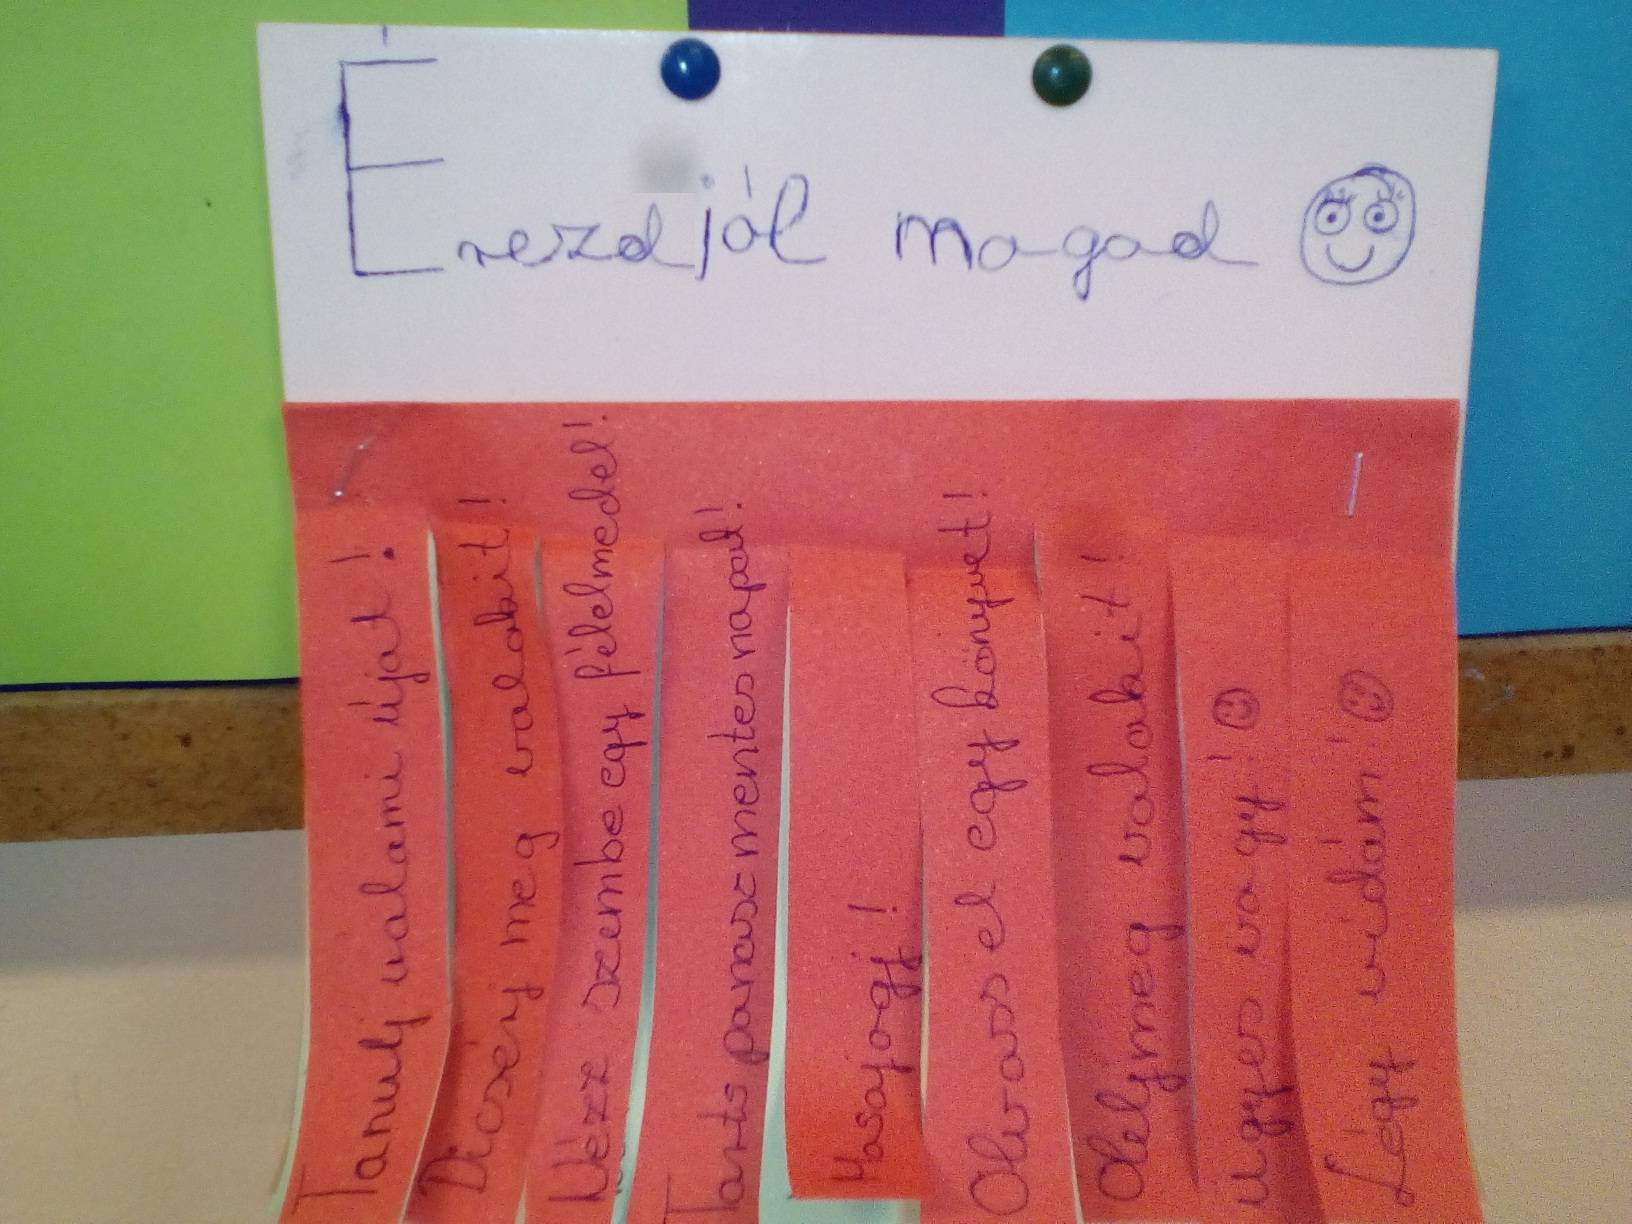 Érezd jól magad
Tanulj valami újat!
Dicsérj meg valakit!
Nézz szembe egy félelmedel!
Tarts panaszmentes napot!
Mosojogj!
Olvass el egy könyvet!
Ölelj meg valakit!
Ügyes vagy!
Légy vidám!